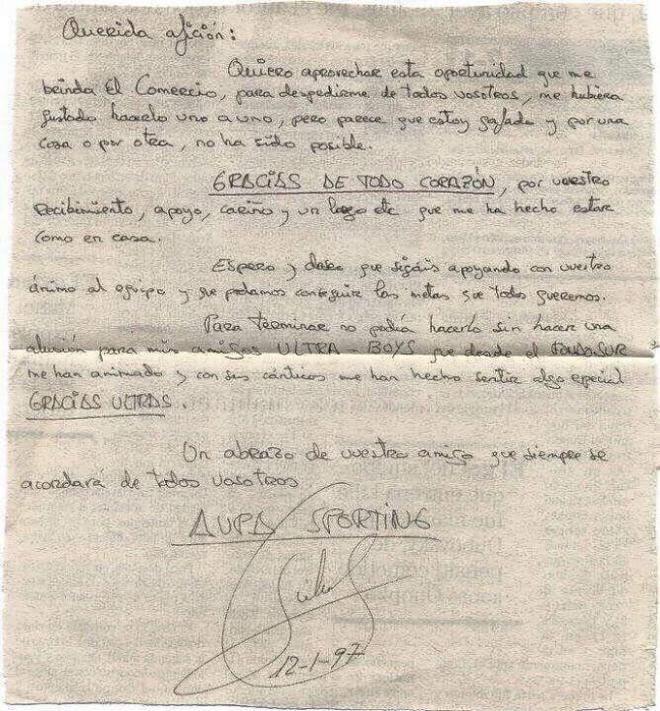 Querida afición:
Quiero aprovechar esta oportunidad que me
brinda El Comercio, para despedirme de todos vosotros, me hubiera
gustado hacerlo uno a uno, pero parece que estoy gafado y por una
cosa o por otra, no ha sido posible.
GRACIAS DE TODO CORAZÓN, por vuestro
recibimiento, apoyo, cariño y un largo etc que me ha hecho estar
como en casa.
Espero y deseo que sigáis apoyando con vuestro
ánimo al equipo y que podamos conseguir las metas que todos queremos.
Para terminar no podía hacerlo sin hacer una
alusión para mis amigos ULTRA-BOYS que desde el FONDO SUR
me han animado y con sus cánticos me han hecho sentir algo especial
GRACIAS ULTRAS
Un abrazo de vuestro amigo que siempre se
acordará de todos vosotros
AUPA SPORTING
12-1-97